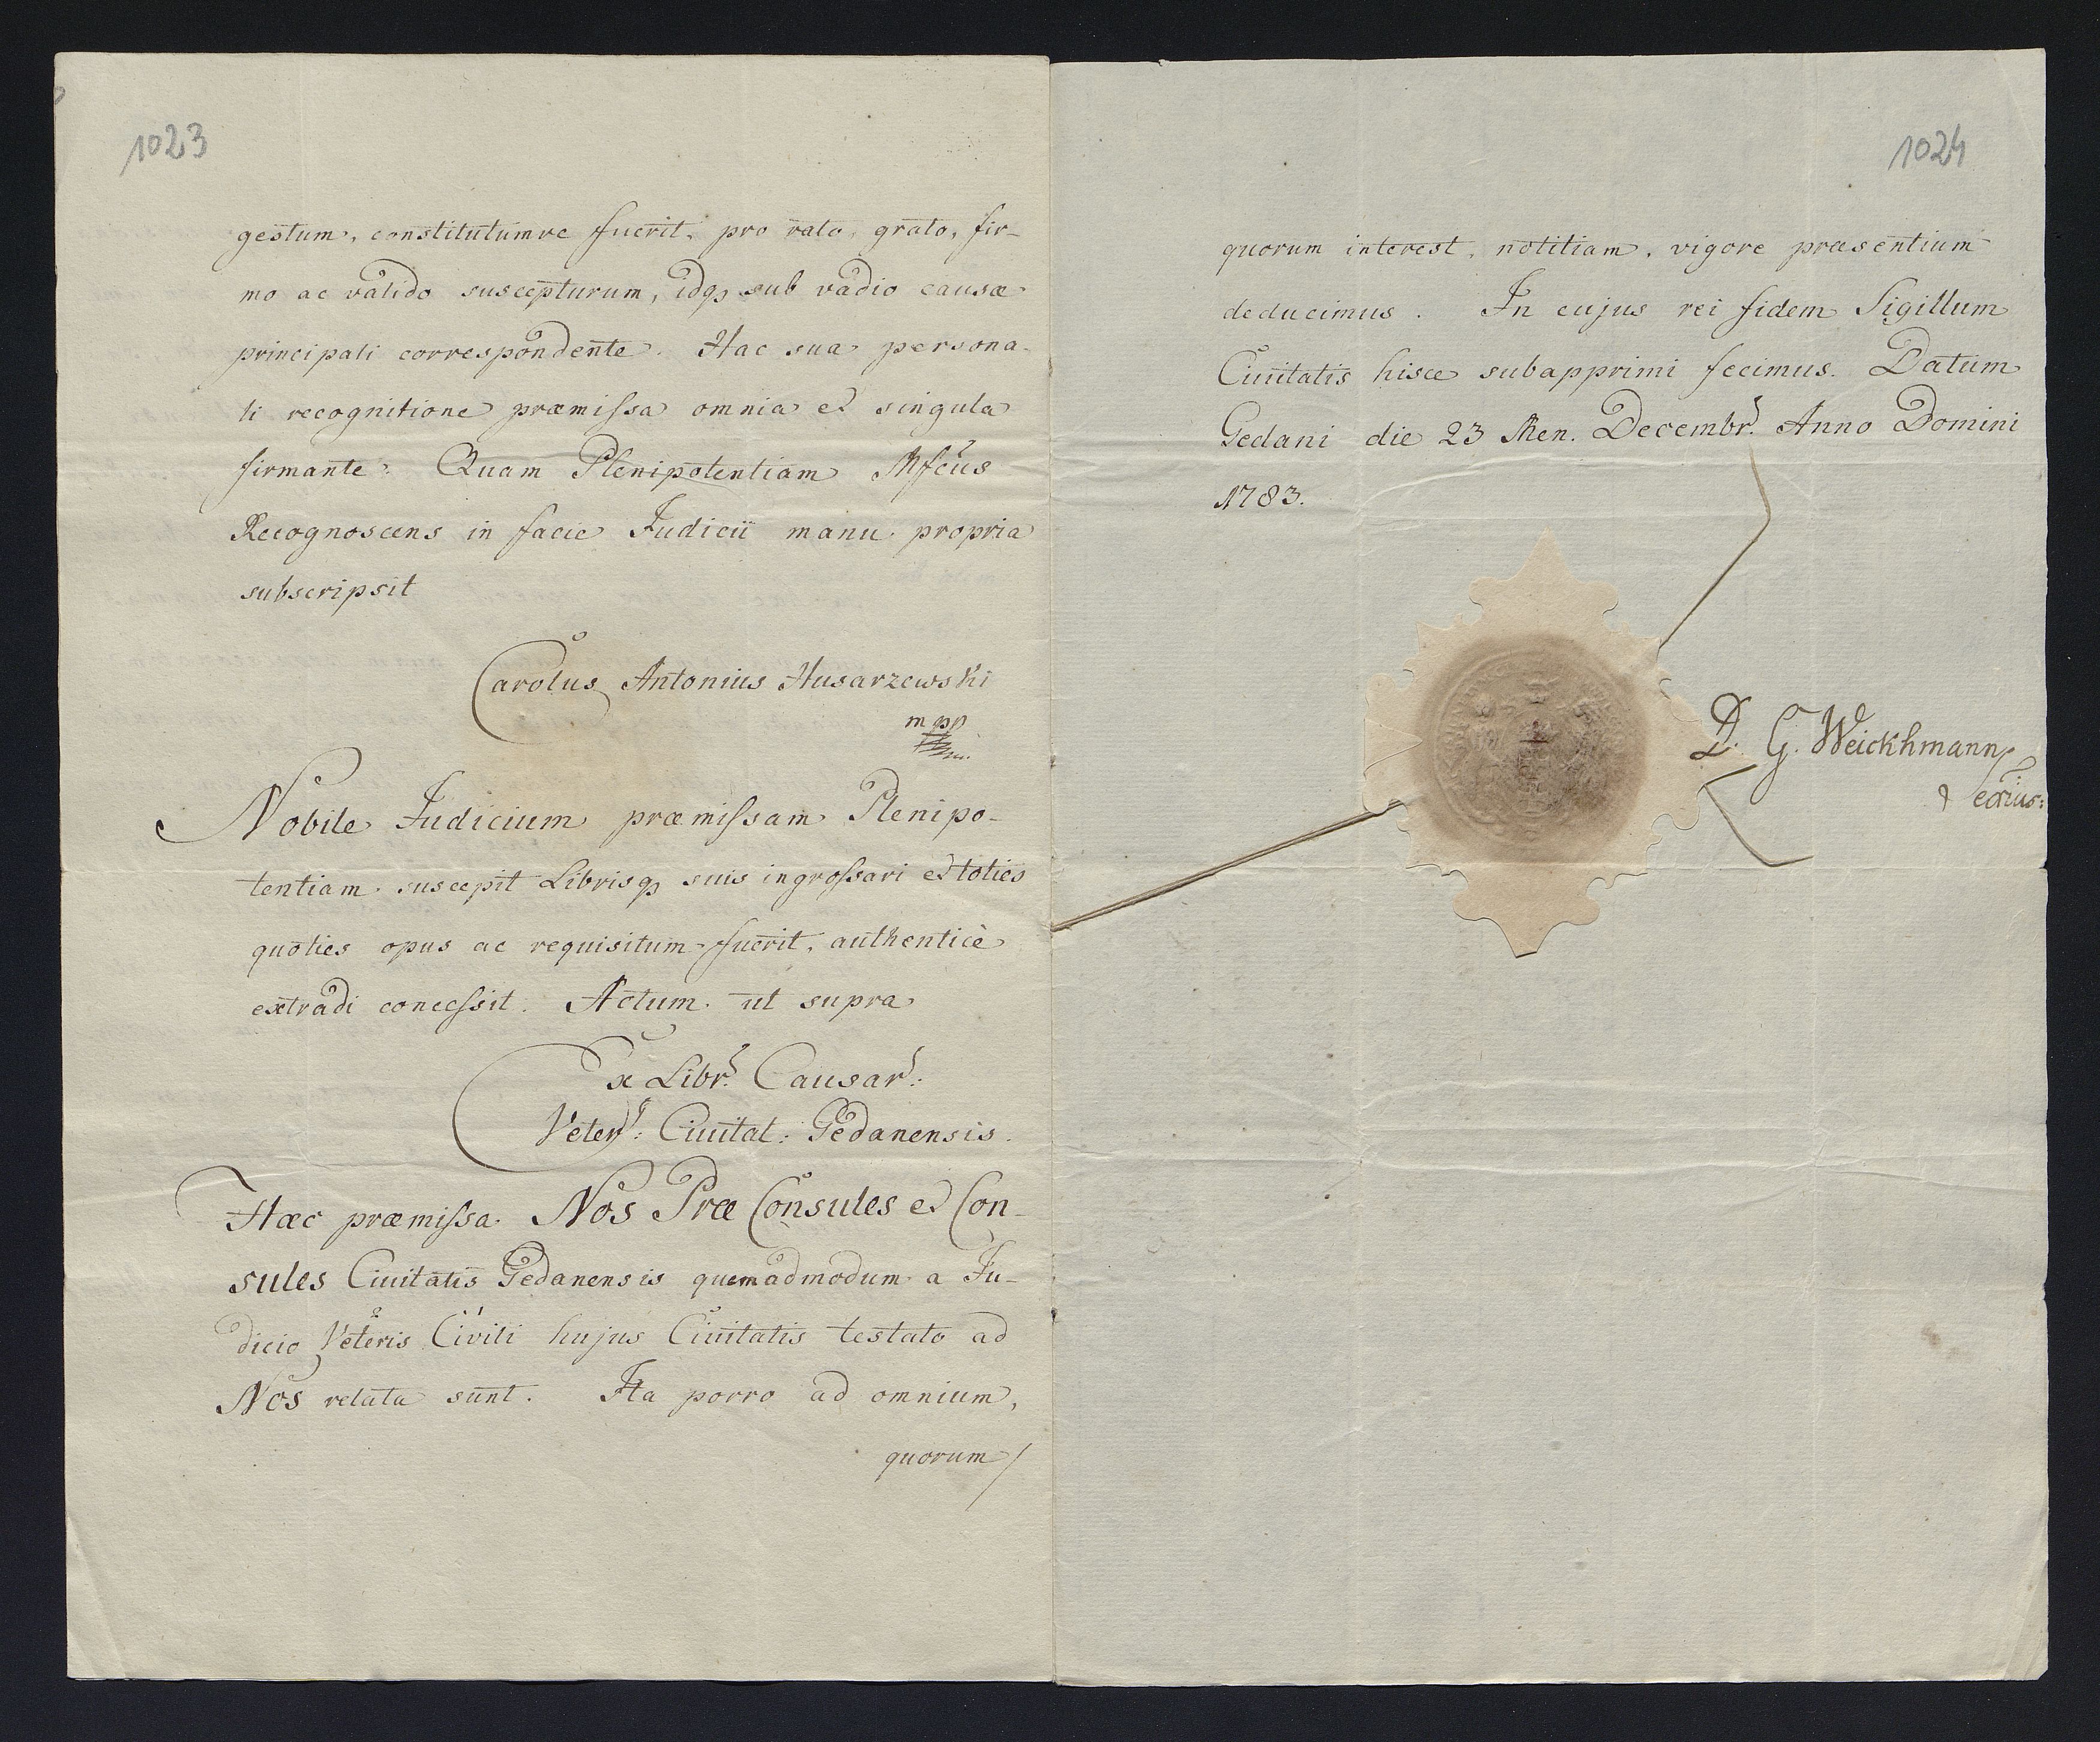 1023
gestum, constitutumve fuerit, pro rato, grato, fir-
mo ac valido suscepturum, idq3 sub vadio causæ
principali correspondente. Hac sua persona-
li recognitione præmissa omnia et singula
firmante. Quam Plenipotentiam Mfcus
Recognoscens in facie Judicii manu propria
subscripsit
Carolus Antonius Husarzewski
mpp
Nobile Judicium præmissam Plenipo-
tentiam suscepit Librisq3 suis ingrossari et toties
quoties opus ac requisitum fuerit, authenticè
extradi concessit. Actum ut supra
Ex Libr. Causar:
Veter: Civitat: Gedanensis.
Hæc præmissa Nos Præ Consules et Con-
sules Civitatis Gedanensis quemadmodum a Ju-
dicio Veteris Civili hujus Civitatis testato ad
Nos relata sunt. Ita porro ad omnium,
quorum
1024
quorum interest, notitiam, vigore præsentium
deducimus. In cujus rei fidem Sigillum
Civitatis hisce subapprimi fecimus. Datum
Gedani die 23 Men. Decembr. Anno Domini
1783.
D. G. Weickhmann